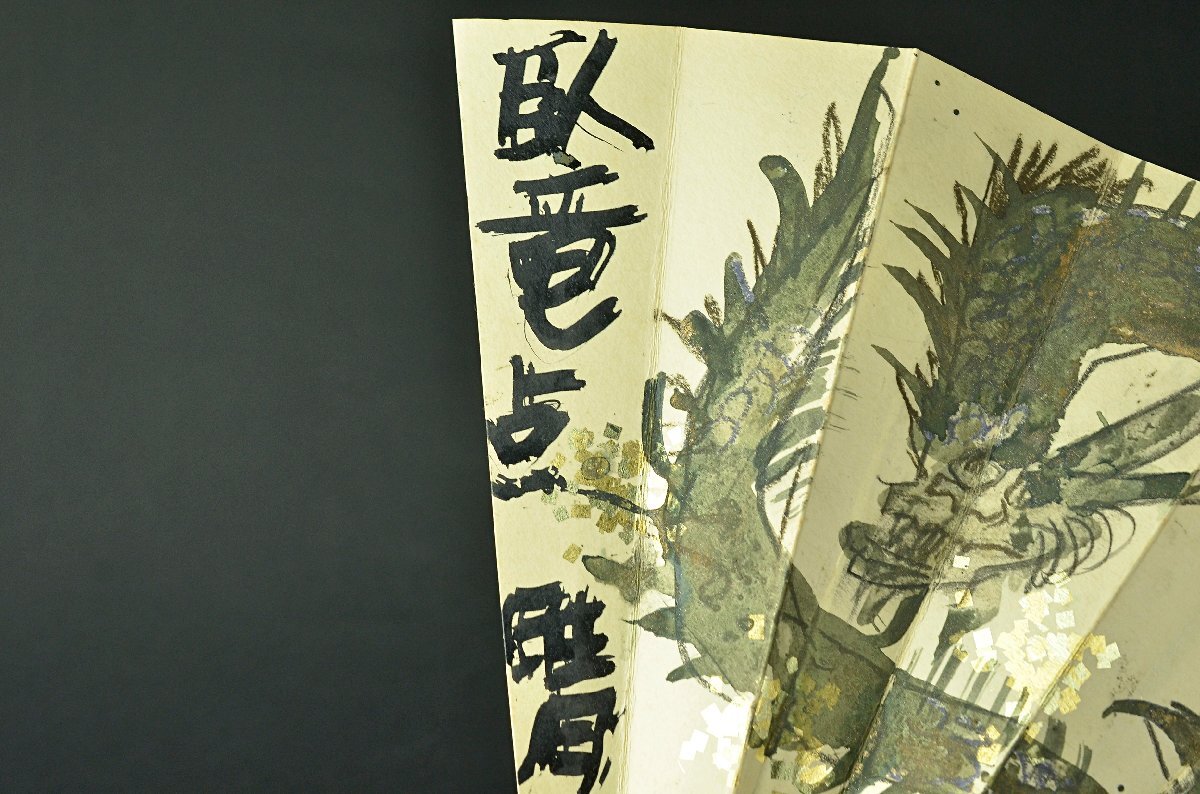 臥竜点睛